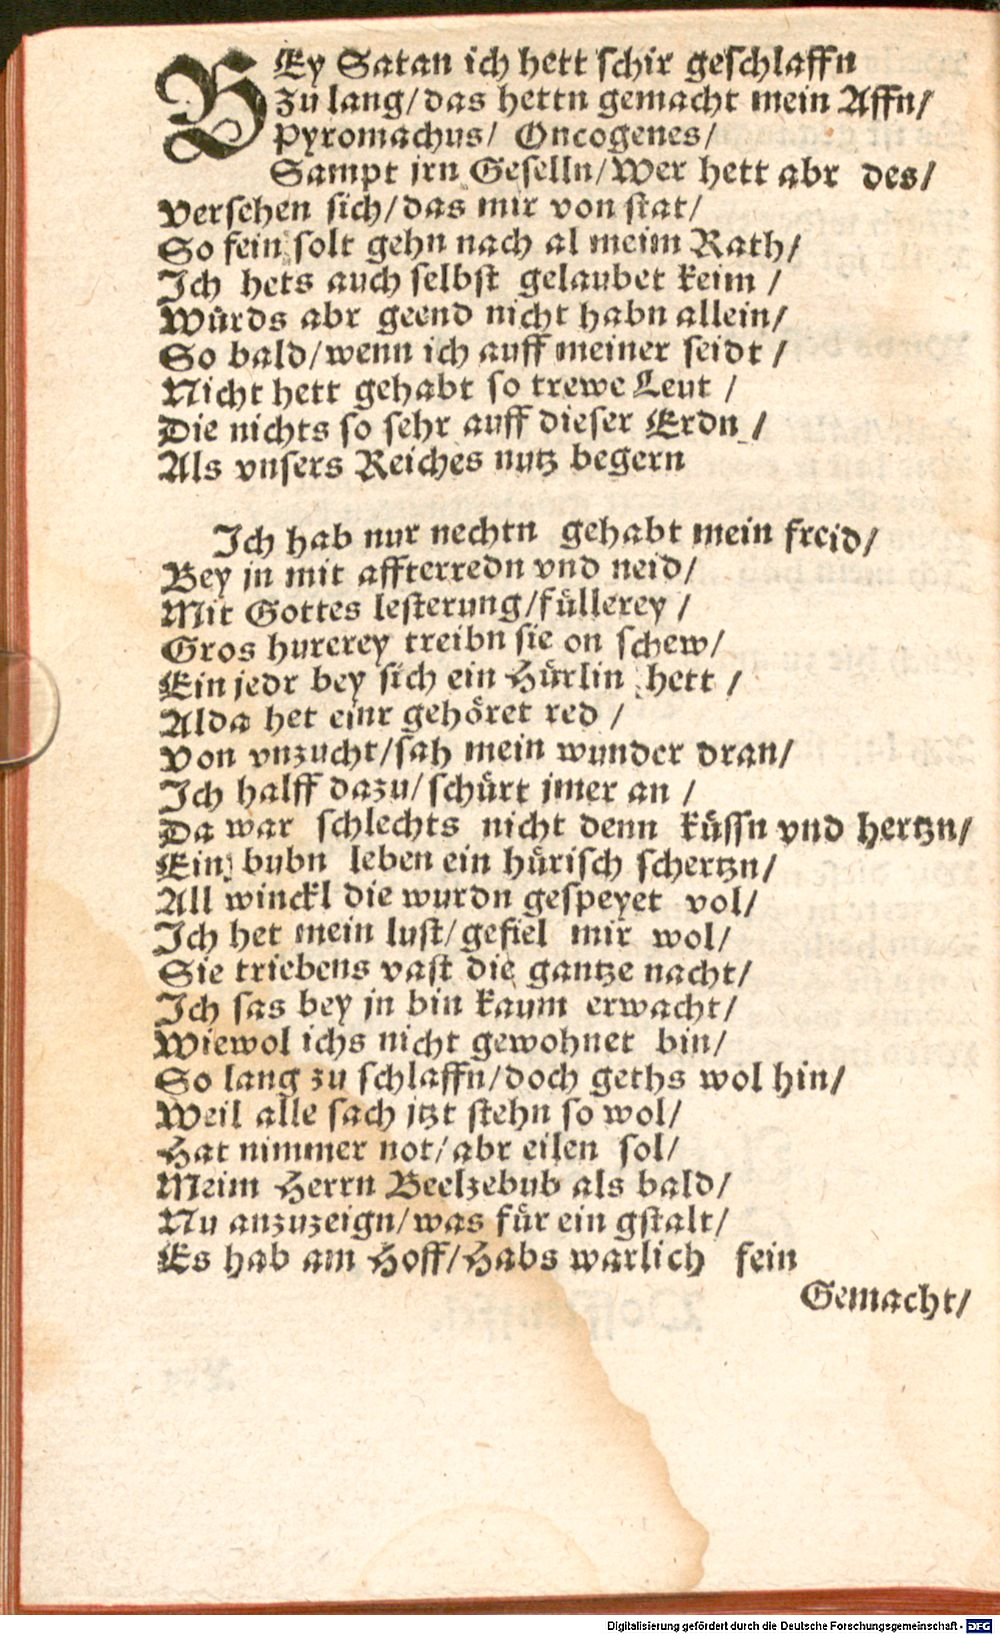 BEy Satan ich hett schir geschlaffn
Zu lang/das hettn gemacht mein Affn/
Pyromachus/ Oncogenes/
Sampt jrn Geselln/Wer hett abr des/
Versehen sich/das mir von stat/
So fein solt gehn nach al meim Rath/
Ich hets auch selbst gelaubet keim/
Würds abr geend nicht habn allein/
So bald/wenn ich auff meiner seidt/
Nicht hett gehabt so trewe Leut/
Die nichts so sehr auff dieser Erdn/
Als vnsers Reiches nutz begern
Ich hab nur nechtn gehabt mein freid/
Bey jn mit affterredn vnd neid/
Mit Gottes lesterung/füllerey/
Gros hurerey treibn sie on schew/
Ein jedr bey sich ein Hürlin hett/
Alda het einr gehöret red/
Von vnzucht/sah mein wunder dran/
Ich halff dazu/schürt jmer an/
Da war schlechts nicht denn küssn vnd hertzn/
Ein bubn leben ein hürisch schertzn/
All winckl die wurdn gespeyet vol/
Ich het mein lust/gefiel mir wol/
Sie triebens vast die gantze nacht/
Ich sas bey jn bin kaum erwacht/
Wiewol ichs nicht gewohnet bin/
So lang zu schlaffn/doch geths wol hin/
Weil alle sach jtzt stehn so wol/
Hat nimmer not/abr eilen sol/
Meim Herrn Beelzebub als bald/
Nu anzuzeign/was für ein gstalt/
Es hab am Hoff/Habs warlich fein
Gemacht/
Digitalisierung gefördert durch die Deutsche Forschungsgemeinschaft - DFG